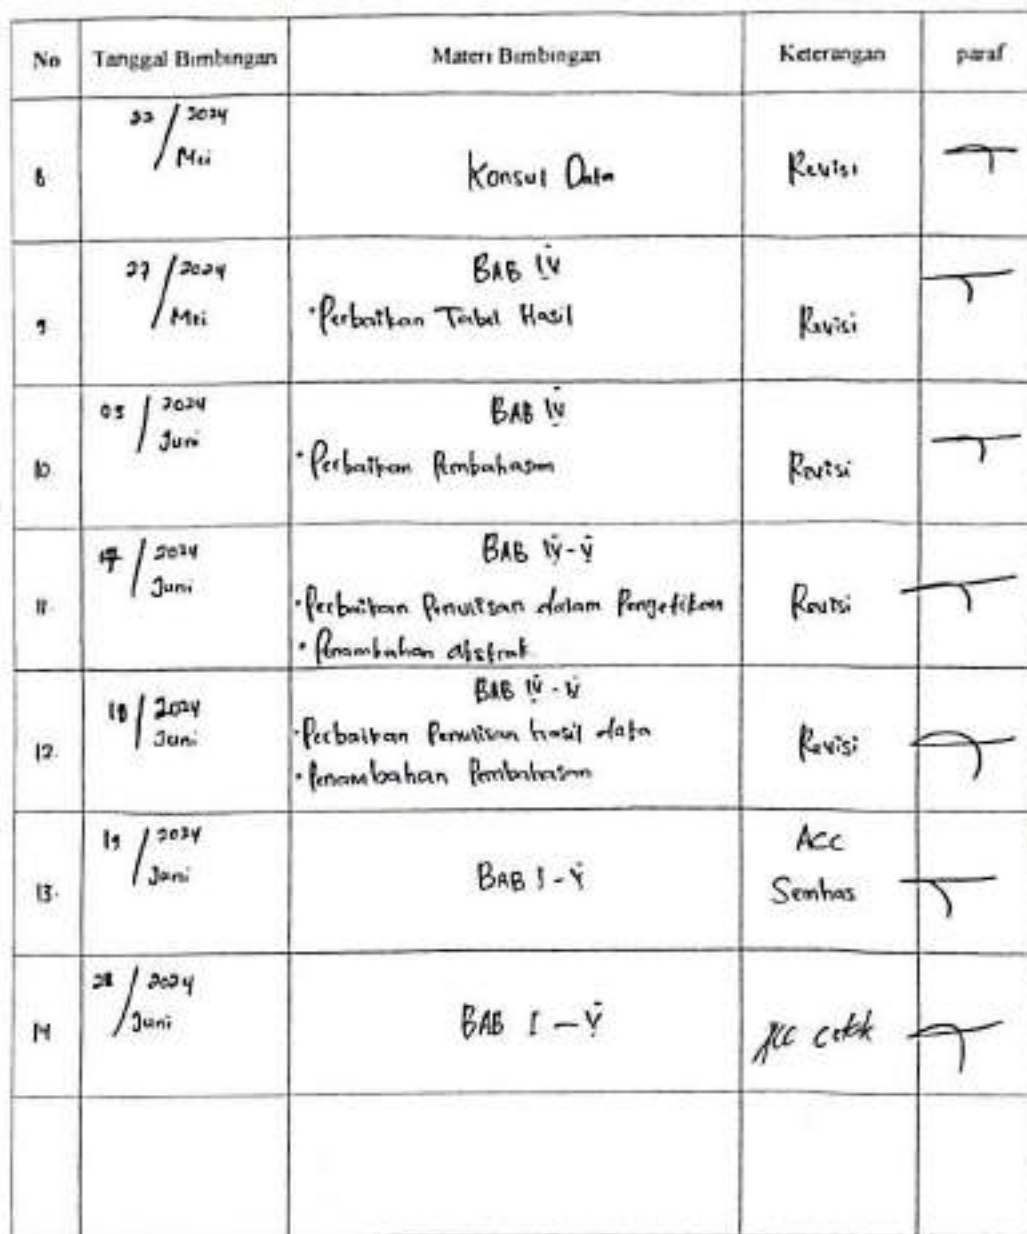 No Tanggal Bimbingan Materi Bimbingan Keterangan paraf
8 22 / 2024 Mei Konsul Data Revisi
9 27 / 2024 Mei BAB IV Revisi
• Perbaikan Tabel Hasil
10 03 / 2024 Juni BAB IV Revisi
• Perbaikan Pembahasan
11 / 2024 Juni BAB IV - V Revisi
• Perbaikan Penulisan dalam Pengetikan
• Penambahan abstrak
12. 18 / 2024 Juni BAB IV - V Revisi
• Perbaikan Penulisan hasil data
• Penambahan Pembahasan
13. 19 / 2024 Juni BAB I - V ACC
Semhas
14 28 / 2024 Juni BAB I - V ACC cetak